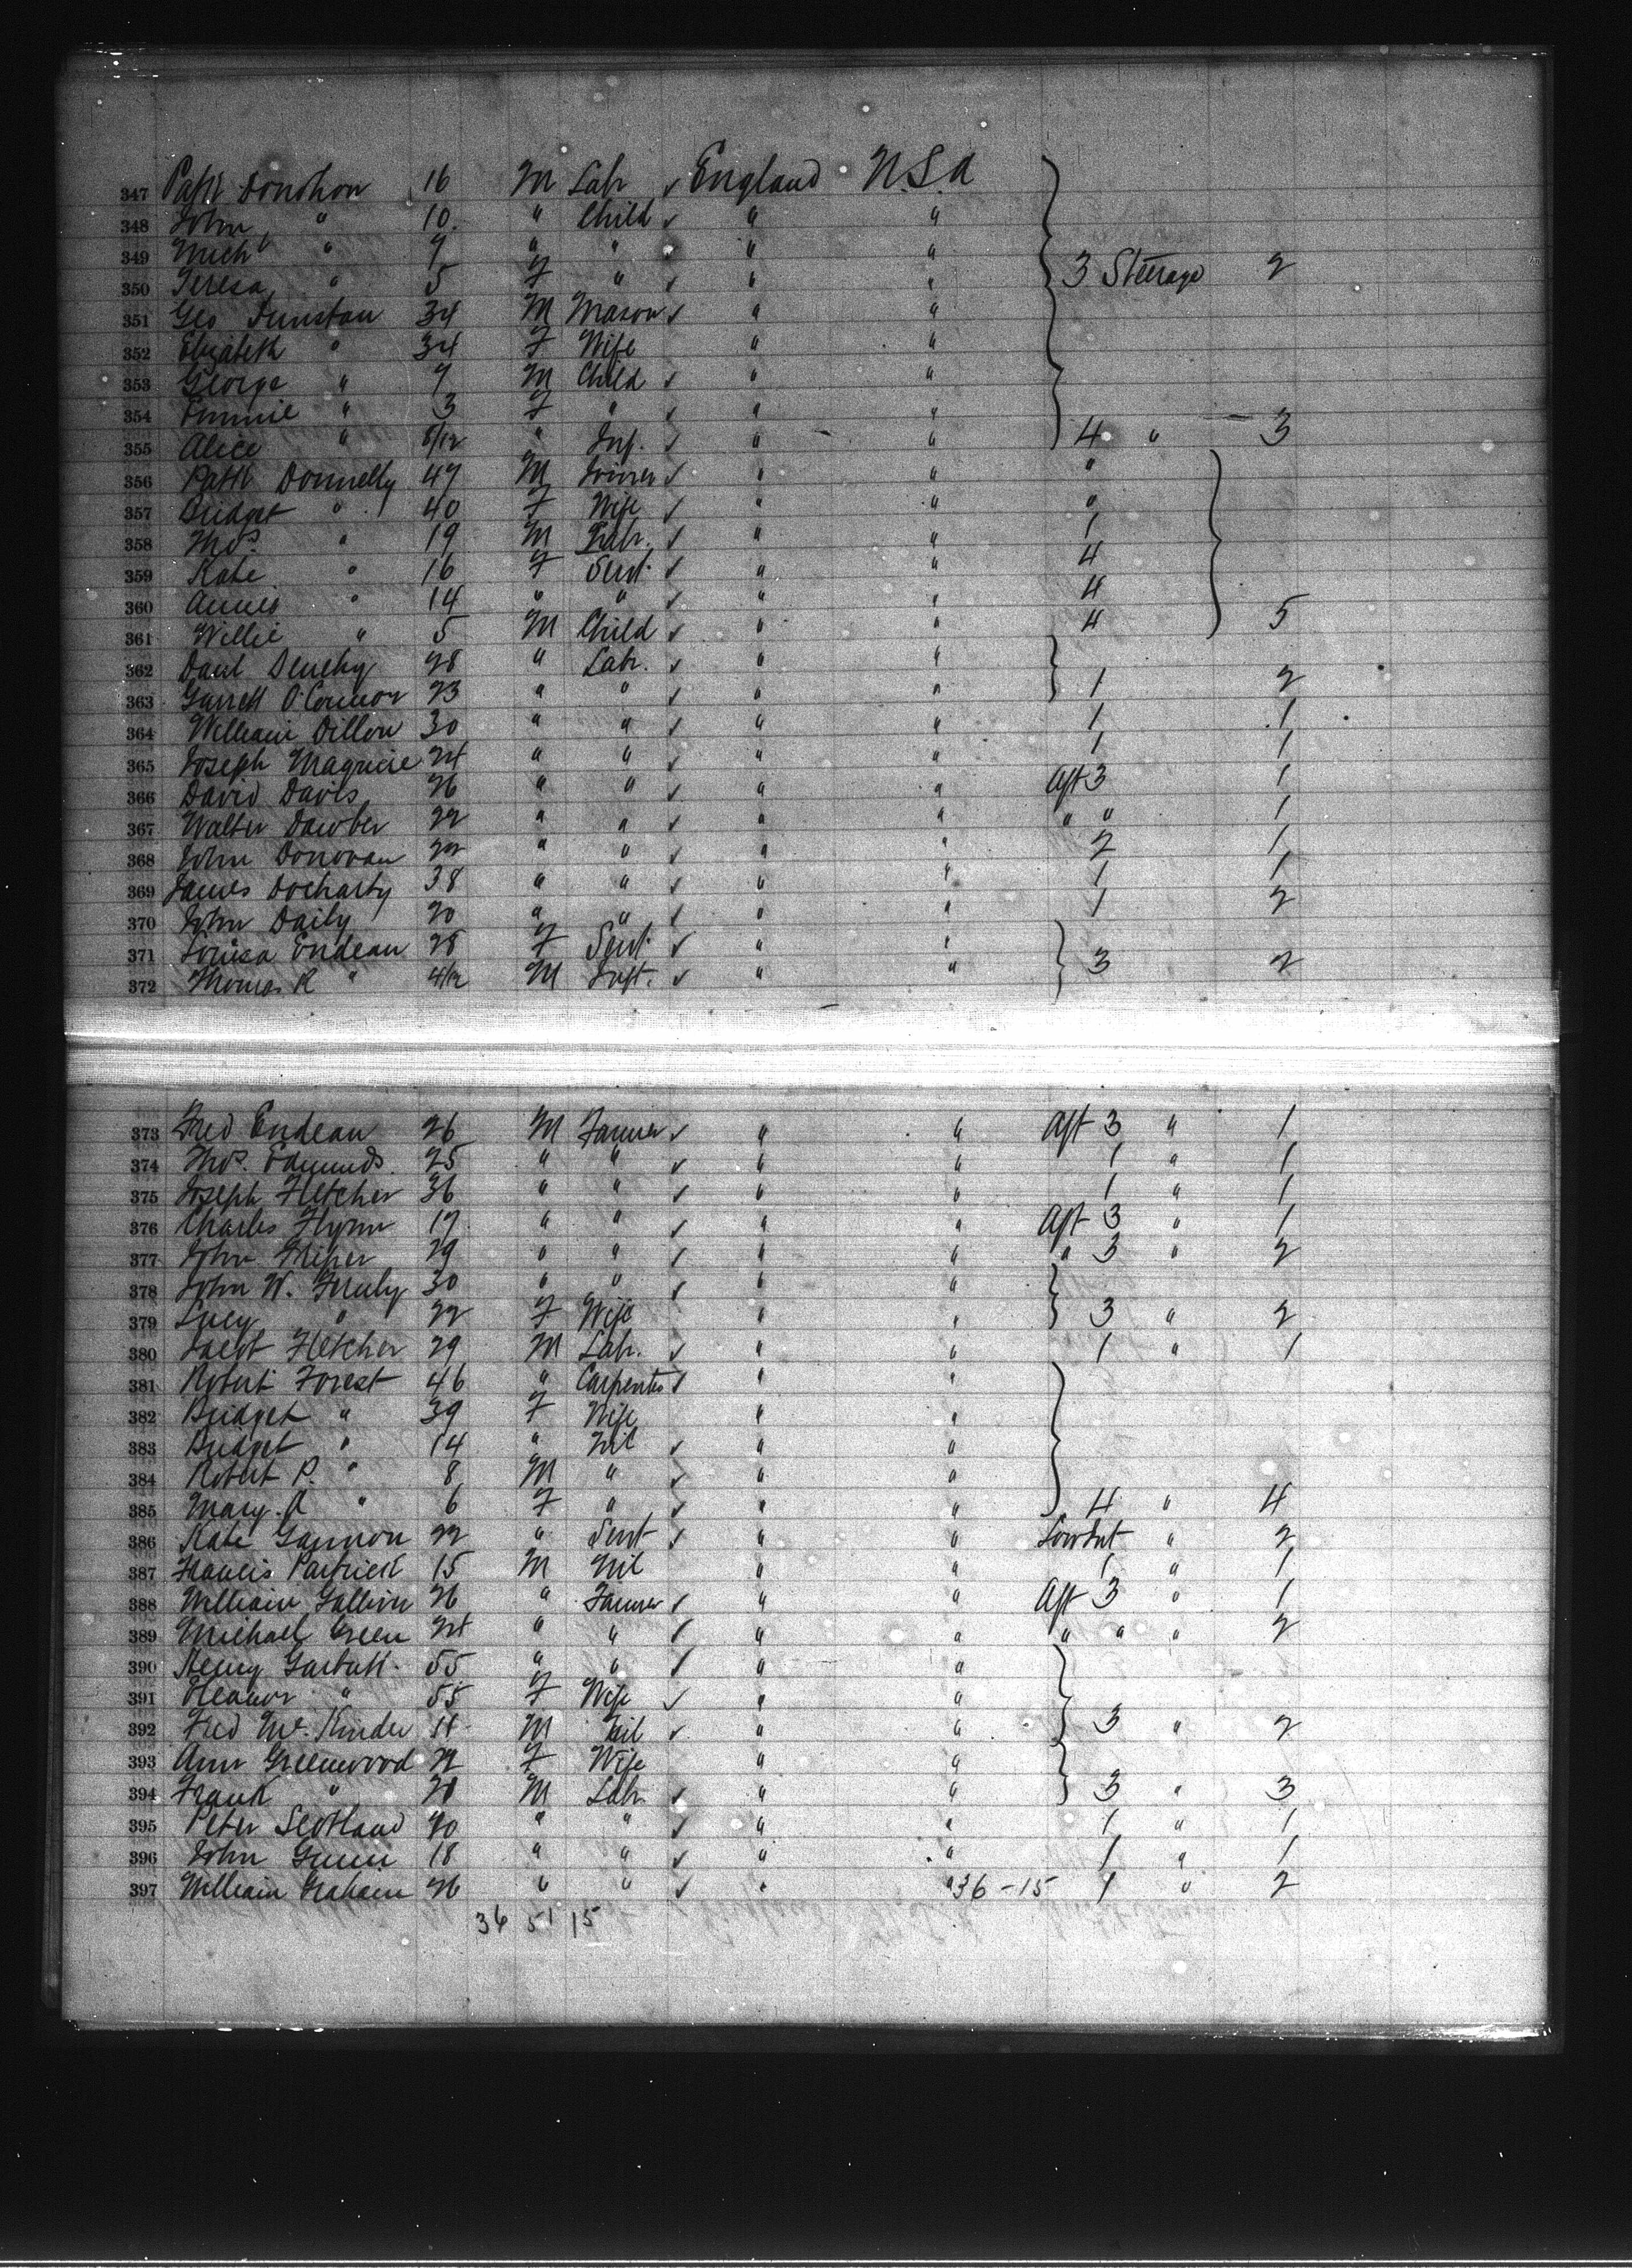 347 Patk Donohon 16 M Labr ✓ England U.S.A
348 John " 10 " Child ✓ " "
349 Mich " 9 " " " "
350 Teresa " 5 F " ✓ " " 3 Steerage 2
351 Geo Dunstan 34 M Mason ✓ " "
352 Elizabeth " 34 F Wife " "
353 George " 7 M Child ✓ " "
354 " 3 F " ✓ " "
355 Alice " 8/12 " Inf. ✓ " " 4 " 3
356 Patk Donnelly 47 M ✓ " " "
357 Bridget " 40 F Wife ✓ " " "
358 Thos " 19 M Labr. ✓ " " 1
359 Kate " 16 F Servt ✓ " " 4
360 Annie " 14 " " ✓ " " 4
361 Willie " 5 M Child ✓ " " 4 5
362 Danl 28 " Labr. ✓ " "
363 Garrett O'Connor 23 " " ✓ " " 1 2
364 William Dillon 30 " " ✓ " " 1 1
365 Joseph Maguire 24 " " ✓ " " 1 1
366 David Davis 26 " " ✓ " " Aft 3 1
367 Walter Dawber 22 " " ✓ " " " " 1
368 John Donovan 22 " " ✓ " " 2 1
369 James Docharty 38 " " ✓ " " 1 1
370 John Daily 20 " " ✓ " " 1 2
371 Louisa Endean 28 F Servt ✓ " "
372 Thomas R " 4/12 M Inft. ✓ " " 3 2
373 Fred Endean 26 M Farmer ✓ " " Aft 3 " 1
374 Thos. Edmunds 25 " " ✓ " " 1 " 1
375 Joseph Fletcher 36 " " ✓ " " 1 " 1
376 Charles Flynn 17 " " ✓ " " Aft 3 " 1
377 John 29 " " ✓ " " " 3 " 2
378 John W. 30 " " ✓ " "
379 Lucy " 22 F Wife " " 3 " 2
380 Jacob Fletcher 29 M Labr. ✓ " " 1 " 1
381 Robert Forest 46 " Carpenter ✓ " "
382 Bridget " 39 F Wife " "
383 Bridget " 14 " Nil ✓ " "
384 Robert P. " 8 M " ✓ " "
385 Mary A " 6 F " ✓ " " 4 " 4
386 Kate Gannon 22 " Servt ✓ " " " 2
387 Francis Partrick 15 M Nil " " 1 " 1
388 William 26 " Farmer ✓ " " Aft 3 " 1
389 Michael Green 24 " " ✓ " " " " " 2
390 Henry Garbutt 55 " " ✓ " "
391 Eleanor " 55 F Wife ✓ " "
392 Fred Mc. Kinder 11 M Nil ✓ " " 3 " 2
393 Ann Greenwood 22 F Wife " "
394 Frank " M Labr ✓ " " 3 " 3
395 Peter Scotland 20 " " ✓ " " 1 " 1
396 John 18 " " ✓ " " 1 " 1
397 William Graham 26 " " ✓ " " 36-15 1 " 2
36 51 15